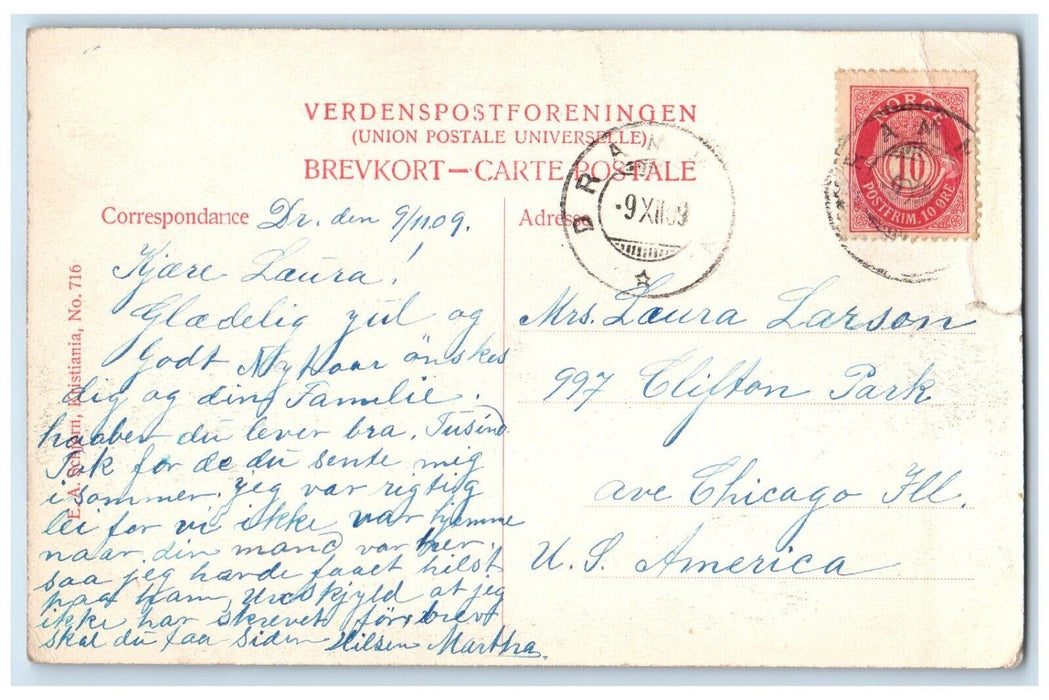 VERDENSPOSTFORENINGEN
(UNION POSTALE UNIVERSELLE)
BREVKORT—CARTE POSTALE
Correspondance
Dr. den 9/11 09.
Kjære Laura!
Glædelig yul og
Godt Nytaar önskes
dig og din Familie.
haaber du lever bra. Tusind
Tak for de du sente mig
i sommer. jeg var rigtig
lei for vi ikke var hjemme
naar din mand var her.
saa jeg havde faaet hilst
paa ham, Undskyld at jeg
ikke har skrevet för brev
skal du faa siden Hilsen Martha.
E. A. Schjørn, Kristiania, No. 716
Adresse
Mrs. Laura Larson
997 Clifton Park
ave Chicago Ill.
U. S. America
NORGE
10
POSTFRIM. 10 ØRE
DRAM
9 XII 09
RAM